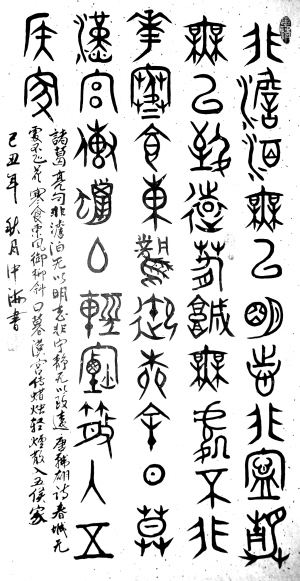 非澹泊無以明志非寧靜
無以致遠春城無處不飛
花寒食東風御柳斜日暮
漢宮傳蠟燭輕煙散入五
侯家
諸葛亮句非澹泊无以明志非宁静无以致遠唐韩翃诗春城无
處不飞花寒食東风御柳斜日暮漢宫传蜡烛轻烟散入五侯家
己丑年秋月冲海書